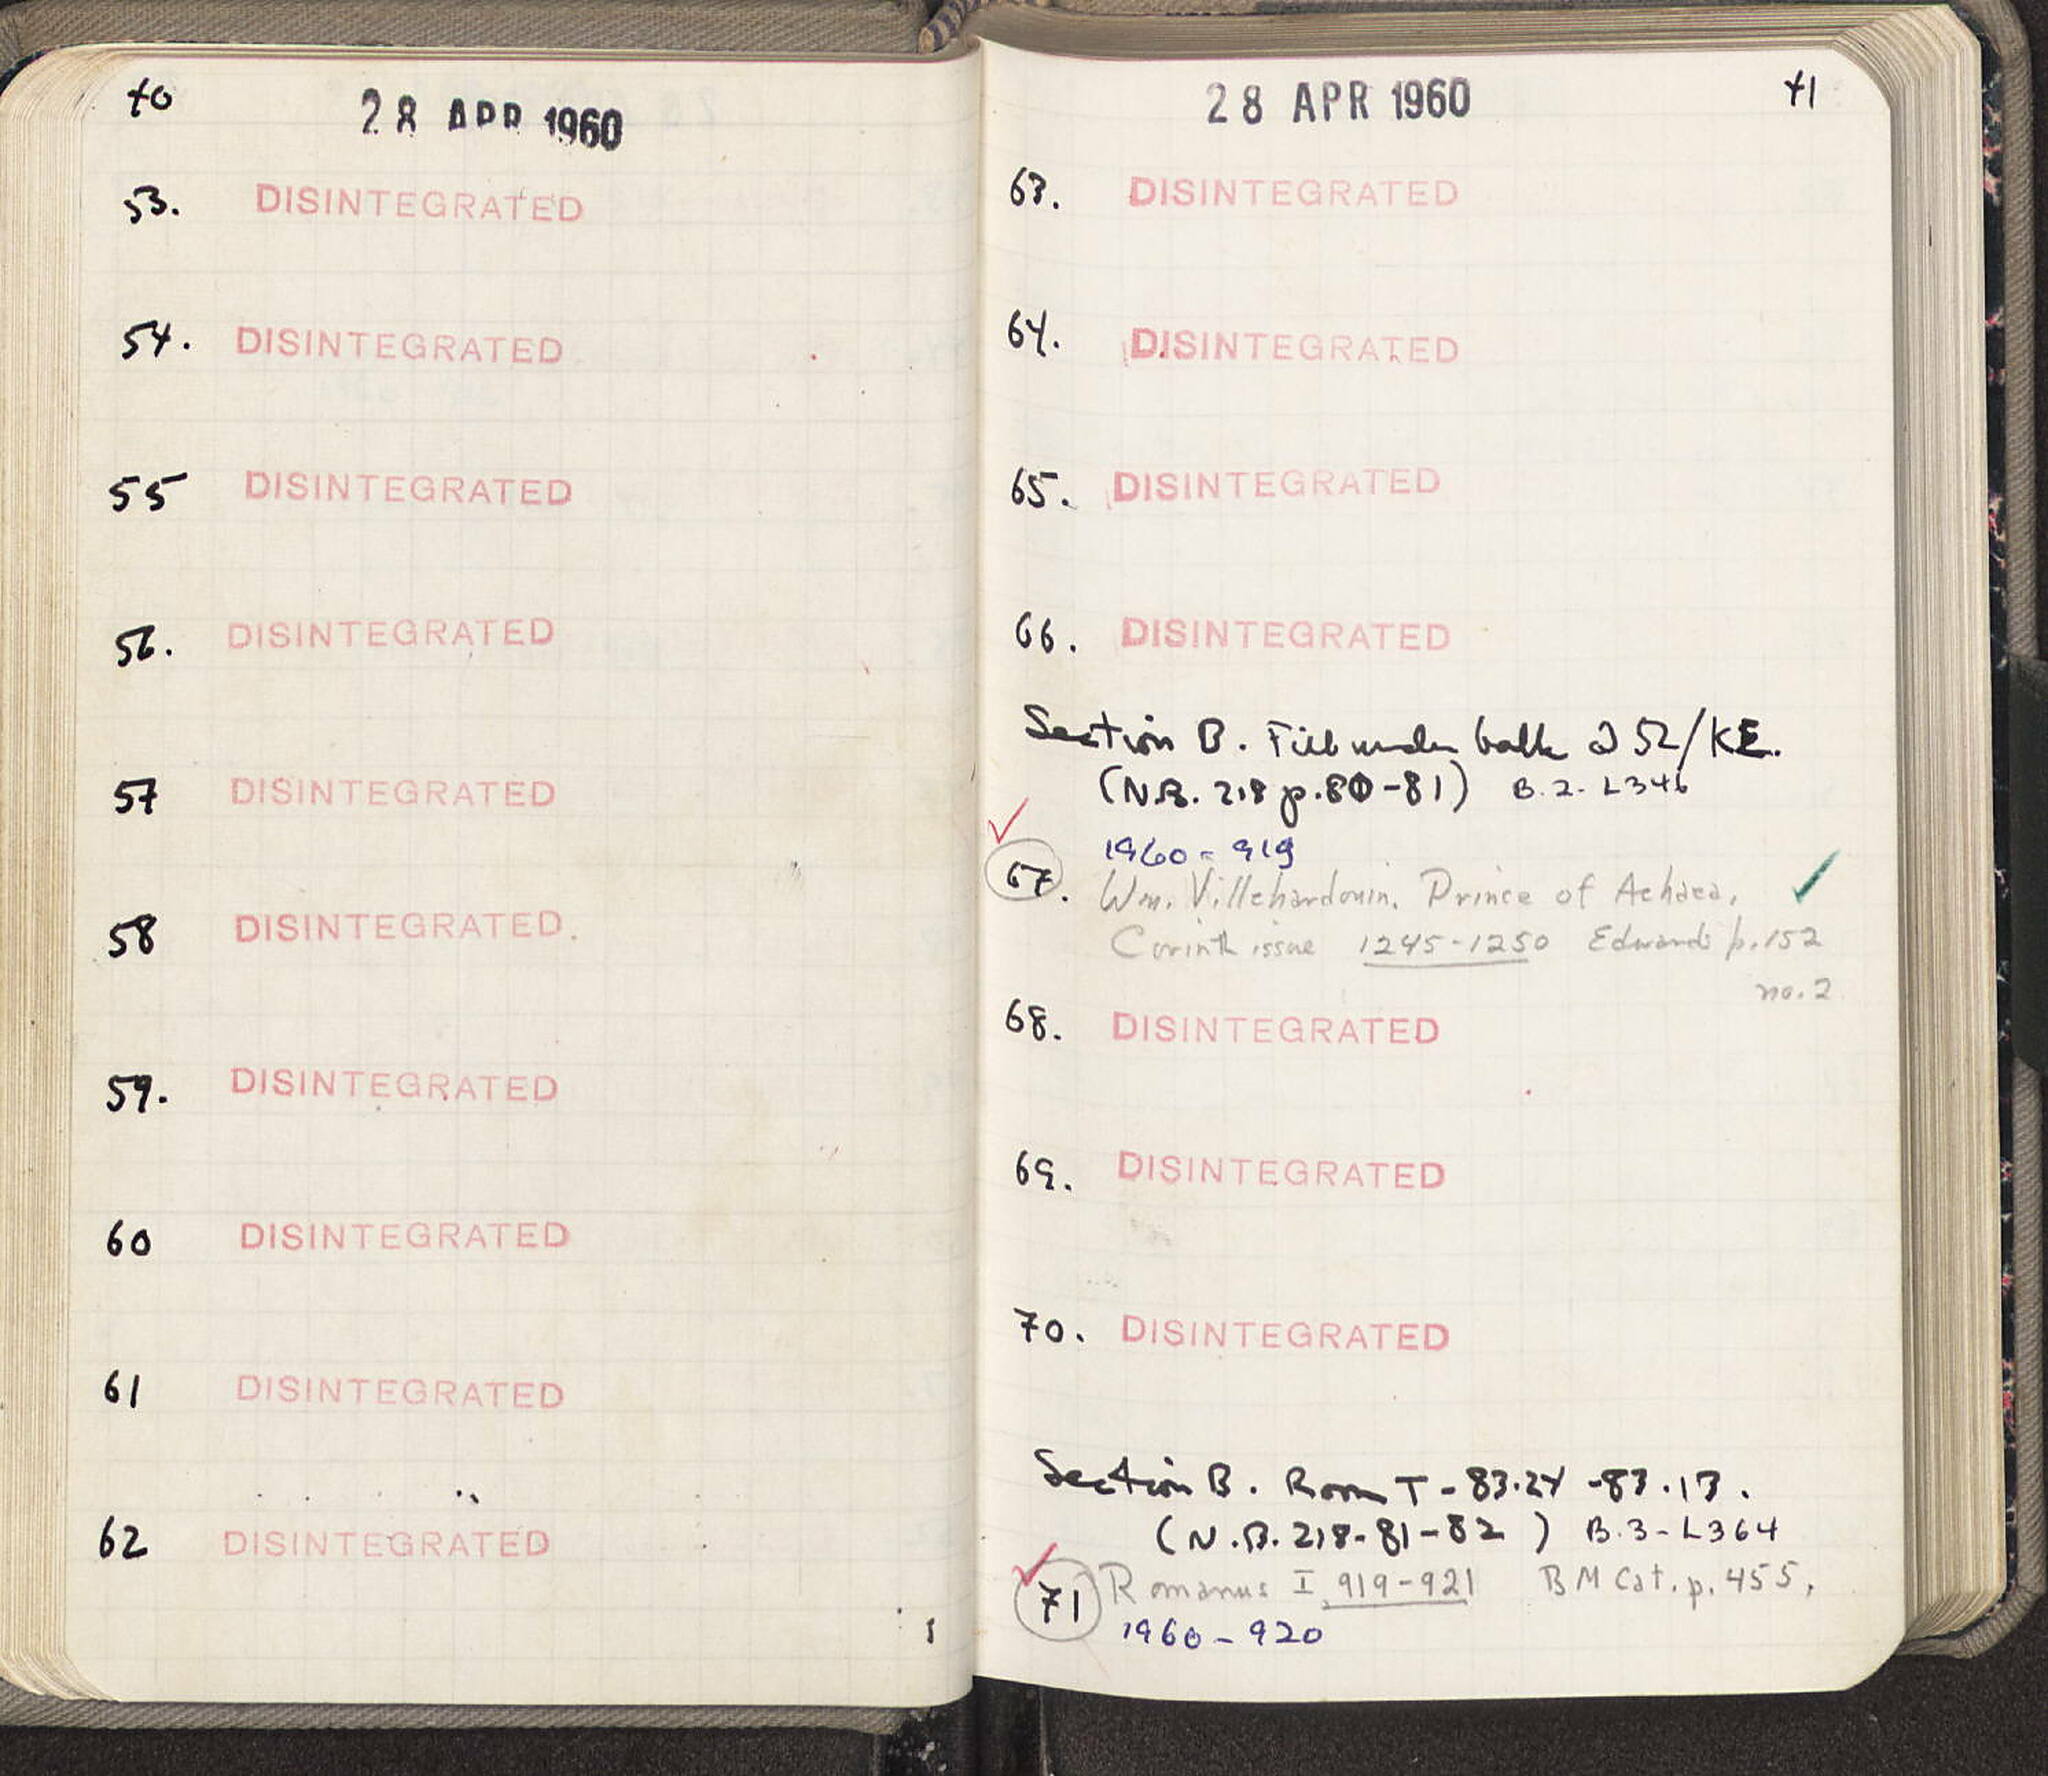 40
28 APR 1960
53. DISINTEGRATED
54. DISINTEGRATED
55 DISINTEGRATED
56. DISINTEGRATED
57 DISINTEGRATED
58 DISINTEGRATED.
59. DISINTEGRATED
60 DISINTEGRATED
61 DISINTEGRATED
62 DISINTEGRATED
28 APR 1960
41
63. DISINTEGRATED
64. DISINTEGRATED
65. DISINTEGRATED
66. DISINTEGRATED
Section B. Fill under balk 52/KE.
(N.B. 218 p.80-81) B.2-L346
1960-919
67. Wm. Villehardouin, Prince of Achaea,
Corinth issue 1245-1250 Edwards p.152
no.2
68. DISINTEGRATED
69. DISINTEGRATED
70. DISINTEGRATED
Section B. Room T-83.24-83.13.
(N.B. 218-81-82) B.3-L364
71 Romanus I, 919-921 BM Cat. p. 455,
1960-920